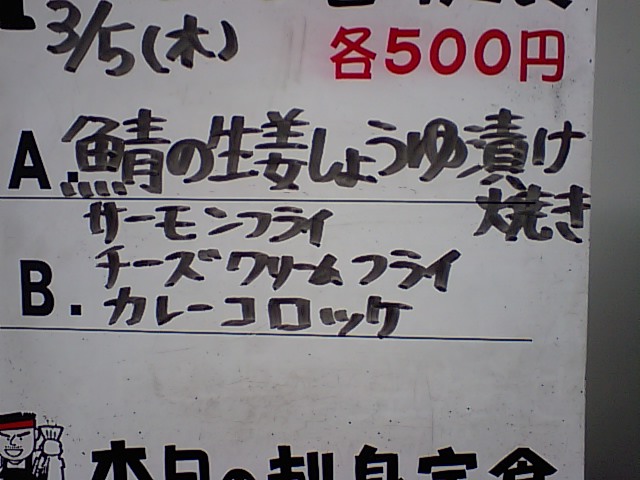 3/5(木)
各500円
A. 鯖の生姜しょうゆ漬け
焼き
サーモンフライ
チーズクリームフライ
B. カレーコロッケ
本日の刺身定食